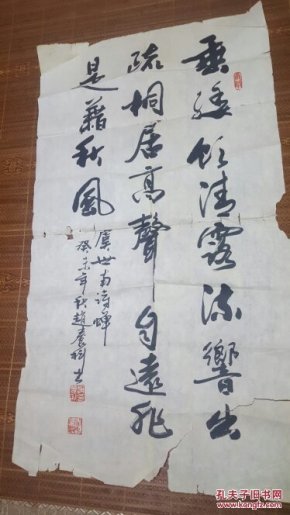 垂緌飲清露流響出
疏桐居高聲自遠非
是藉秋風
虞世南詩蟬
癸未年秋趙農樹书
孔夫子旧书网